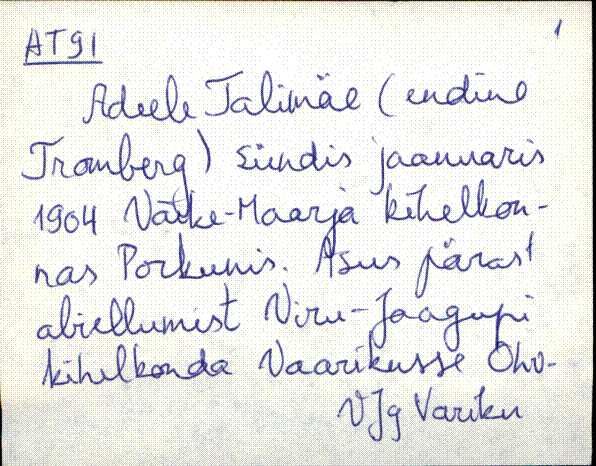 1
AT91
Adeele Talimäe (endine
Tromberg) sündis jaanuaris
1904 Väike-Maarja kihelkon-
nas Porkunis. Asus pärast
abiellumist Viru-Jaagupi
kihelkonda Vaarikusse
VJg Variku